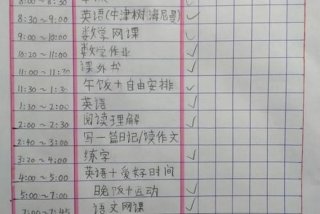 8:30 ~ 9:00 英语(牛津树/海尼曼) ✓
9:00 ~ 10:00 数学网课 ✓
10:20 ~ 11:00 数学作业 ✓
11:00 ~ 11:30 课外书
11:30 ~ 1:30 午饭+自由安排 ✓
1:30 ~ 2:00 英语 ✓
2:00 ~ 2:30 阅读理解 ✓
2:40 ~ 3:00 写一篇日记/读作文
3:20 ~ 4:00 练字 ✓
4:00 ~ 5:00 英语+爱好时间
5:00 ~ 7:00 晚饭+运动 ✓
7:00 ~ 7:45 语文网课